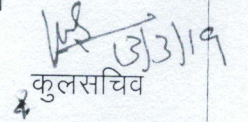 13/3/19
कुलसचिव